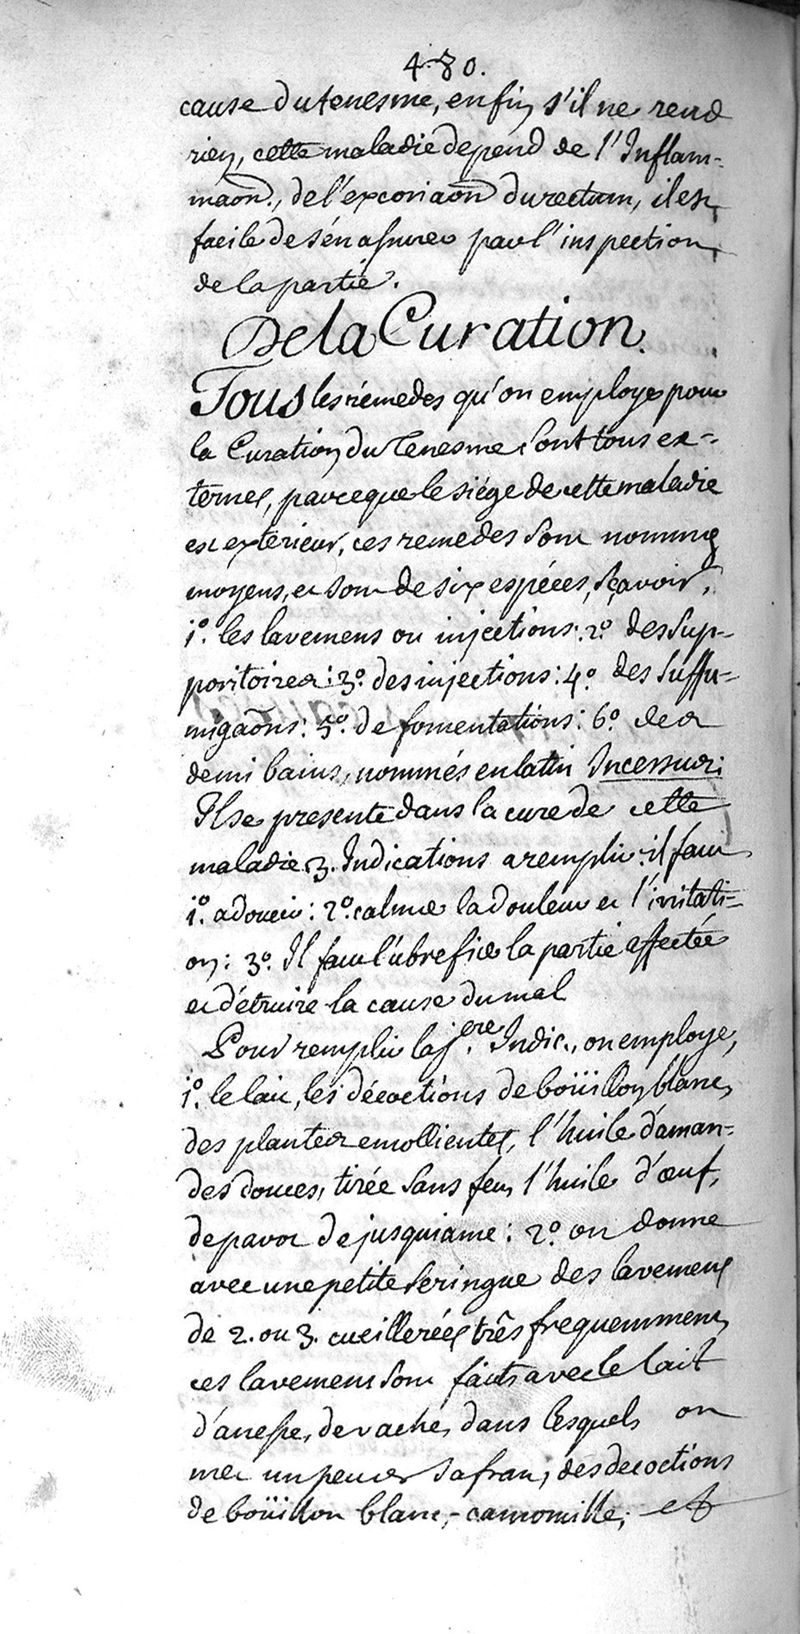 480.
cause du tenesme, enfin s'il ne rend
rien, cette maladie depend de l'Inflam-
maon., de l'excoriaon du rectum, il est
facile de s'én assurer par l'inspection
de la partie.
De la Curation.
Tous les rémedes qu'on employe pour
la Curation du Tenesme sont tous ex-
ternes, parceque le siége de cette maladie
est extérieur, ces remedes sont nommés
moyens, et sont de six espéces, sçavoir,
1º. les lavemens ou injections: 2º des sup-
pozitoires: 3º. des injections: 4º. des suffu-
migaõns: 5º. de fomentations: 6º. des
demi bains, nommés en latin Incessus:
Il se presente dans la cure de cette
maladie 3. Indications a remplir: il faut
1º. adoucir: 2º. calmer la douleur et l'irritati-
on: 3º. Il faut lubrefier la partie affectée
et détruire la cause du mal
Pour remplir la jere. Indic., on employe,
1º. le lait, les décoctions de boüillon blanc,
des plantes emollientes, l'huile d'aman-
des douces, tirée sans feu, l'huile d'œuf,
de pavot de jusquiame: 2º on donne
avec une petite seringue des lavemens
de 2. ou 3. cueillerées três frequemment,
ces lavemens sont faits avec le lait
d'anesse, de vache, dans lesquels on
met un peu de safran, des decoctions
de boüillon blanc, camomille; et